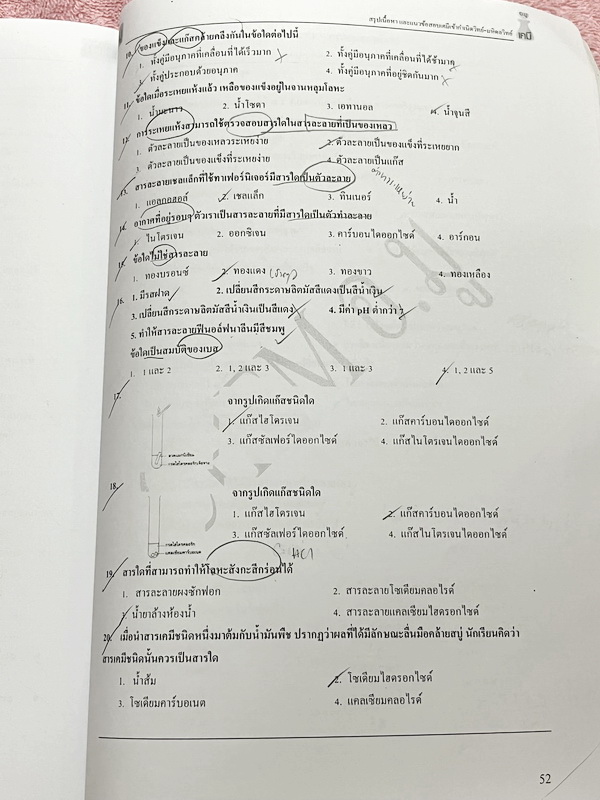 สรุปเนื้อหา และแนวข้อสอบเคมีเข้ากำเนิดวิทย์-มหิดลวิทย์ เคมี
10. ของแข็งและแก๊สคล้ายคลึงกันในข้อใดต่อไปนี้
1. ทั้งคู่มีอนุภาคที่เคลื่อนที่ได้เร็วมาก 2. ทั้งคู่มีอนุภาคที่เคลื่อนที่ได้ช้ามาก
3. ทั้งคู่ประกอบด้วยอนุภาค 4. ทั้งคู่มีอนุภาคที่อยู่ชิดกันมาก
11. ข้อใดเมื่อระเหยแห้งแล้ว เหลือของแข็งอยู่ในจานหลุมโลหะ
1. น้ำมะนาว 2. น้ำโซดา 3. เอทานอล 4. น้ำจุนสี
12. การระเหยแห้งสามารถใช้ตรวจสอบสารใดในสารละลายที่เป็นของเหลว
1. ตัวละลายเป็นของเหลวระเหยง่าย 2. ตัวละลายเป็นของแข็งที่ระเหยยาก
3. ตัวละลายเป็นของแข็งที่ระเหยง่าย 4. ตัวละลายเป็นแก๊ส
13. สารละลายเชลแล็กที่ใช้ทาเฟอร์นิเจอร์มีสารใดเป็นตัวละลาย
1. แอลกอฮอล์ 2. เชลแล็ก 3. ทินเนอร์ 4. น้ำ
14. อากาศที่อยู่รอบๆ ตัวเราเป็นสารละลายที่มีสารใดเป็นตัวทำละลาย
1. ไนโตรเจน 2. ออกซิเจน 3. คาร์บอนไดออกไซด์ 4. อาร์กอน
15. ข้อใดไม่ใช่สารละลาย
1. ทองบรอนซ์ 2. ทองแดง (ธาตุ) 3. ทองขาว 4. ทองเหลือง
16. 1. มีรสฝาด 2. เปลี่ยนสีกระดาษลิตมัสสีแดงเป็นสีน้ำเงิน
3. เปลี่ยนสีกระดาษลิตมัสสีน้ำเงินเป็นสีแดง 4. มีค่า pH ต่ำกว่า 7
5. ทำให้สารละลายฟีนอล์ฟทาลีนมีสีชมพู
ข้อใดเป็นสมบัติของเบส
1. 1 และ 2 2. 1, 2 และ 3 3. 1 และ 3 4. 1, 2 และ 5
17. จากรูปเกิดแก๊สชนิดใด
1. แก๊สไฮโดรเจน 2. แก๊สคาร์บอนไดออกไซด์
3. แก๊สซัลเฟอร์ไดออกไซด์ 4. แก๊สไนโตรเจนไดออกไซด์
18. จากรูปเกิดแก๊สชนิดใด
1. แก๊สไฮโดรเจน 2. แก๊สคาร์บอนไดออกไซด์
3. แก๊สซัลเฟอร์ไดออกไซด์ 4. แก๊สไนโตรเจนไดออกไซด์
กรดไฮโดรคลอริก
แคลเซียมคาร์บอเนต
HCl
19. สารใดที่สามารถทำให้โลหะสังกะสีกร่อนได้
1. สารละลายผงซักฟอก 2. สารละลายโซเดียมคลอไรด์
3. น้ำยาล้างห้องน้ำ 4. สารละลายแคลเซียมไฮดรอกไซด์
20. เมื่อนำสารเคมีชนิดหนึ่งมาต้มกับน้ำมันพืช ปรากฏว่าผลที่ได้มีลักษณะลื่นมือคล้ายสบู่ นักเรียนคิดว่า
สารเคมีชนิดนั้นควรเป็นสารใด
1. น้ำส้ม 2. โซเดียมไฮดรอกไซด์
3. โซเดียมคาร์บอเนต 4. แคลเซียมคลอไรด์
52